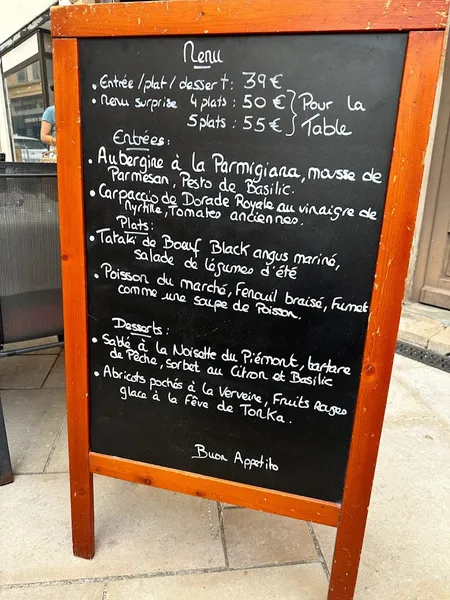 Menu
• Entrée/plat/dessert: 39€
• Menu surprise 4 plats: 50€ } Pour la
5 plats: 55€ } Table
Entrées:
• Aubergine à la Parmigiana, mousse de
Parmesan, Pesto de Basilic.
• Carpaccio de Dorade Royale au vinaigre de
Myrtille, Tomates anciennes.
Plats:
• Tataki de Boeuf Black angus mariné,
salade de légumes d'été
• Poisson du marché, Fenouil braisé, Fumet
comme une soupe de Poisson.
Desserts:
• Sablé à la Noisette du Piémont, tartare
de Pêche, sorbet au Citron et Basilic
• Abricots pochés à la Verveine, Fruits Rouges
glace à la Fève de Tonka.
Buon Appetito